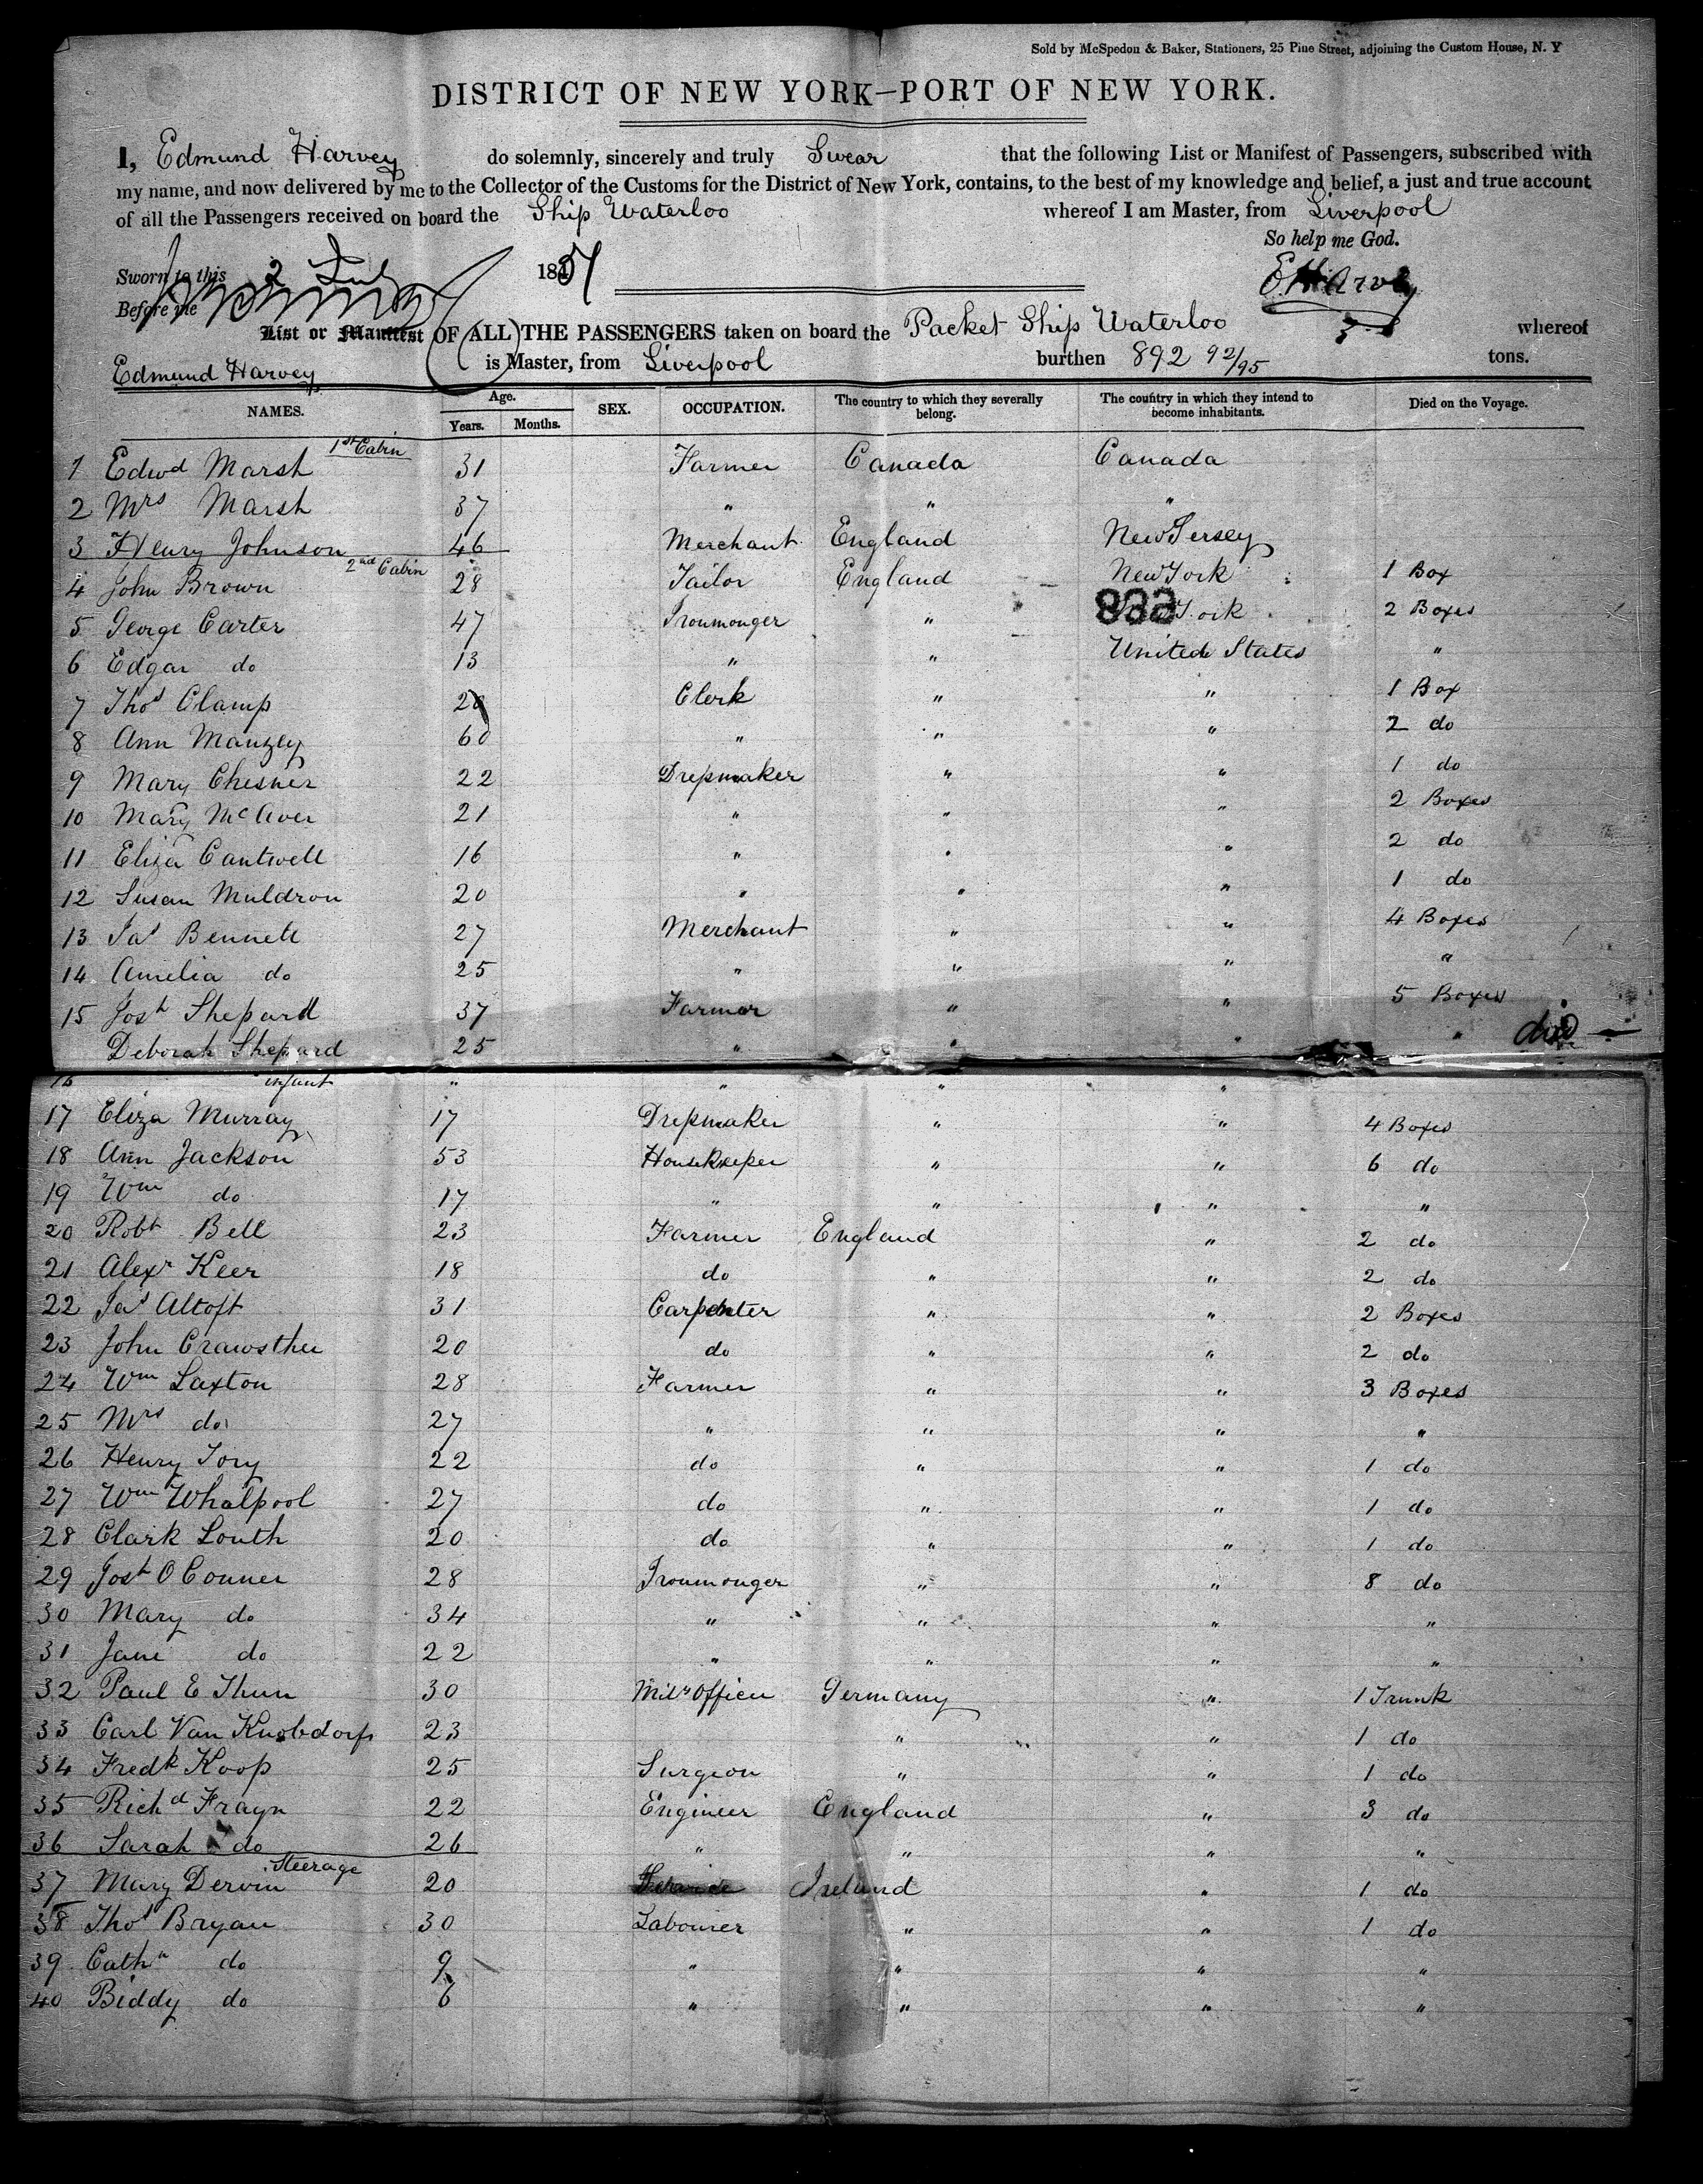 Sold by McSpedon & Baker, Stationers, 25 Pine Street, adjoining the Custom House, N. Y
DISTRICT OF NEW YORK—PORT OF NEW YORK.
I, Edmund Harvey do solemnly, sincerely and truly Swear that the following List or Manifest of Passengers, subscribed with
my name, and now delivered by me to the Collector of the Customs for the District of New York, contains, to the best of my knowledge and belief, a just and true account
of all the Passengers received on board the Ship Waterloo whereof I am Master, from Liverpool
So help me God.
Sworn to this 2 July 1851
E Harvey
Before me
List or Manifest OF ALL THE PASSENGERS taken on board the Packet Ship Waterloo whereof
Edmund Harvey is Master, from Liverpool burthen 892 92/95 tons.
NAMES. Age. Years. Months. SEX. OCCUPATION. The country to which they severally belong. The country in which they intend to become inhabitants. Died on the Voyage.
1st Cabin
1 Edwd Marsh 31 Farmer Canada Canada
2 Mrs Marsh 37 " " "
3 Henry Johnson 46 Merchant England New Jersey
2nd Cabin
4 John Brown 28 Tailor England New York 1 Box
5 George Carter 47 Ironmonger " York 2 Boxes
882
6 Edgar do 13 " " United States "
7 Thos Clamp Clerk " " 1 Box
8 Ann Manzey 60 " " " 2 do
9 Mary Chesner 22 Dressmaker " " 1 do
10 Mary McAver 21 " " " 2 Boxes
11 Eliza Cantwell 16 " " " 2 do
12 Susan Muldron 20 " " " 1 do
13 Jas Bennett 27 Merchant " " 4 Boxes
14 Amelia do 25 " " " "
15 Josh Shepard 37 Farmer " " 5 Boxes
Deborah Shepard 25 " " " "
16 infant " " " "
17 Eliza Murray 17 Dressmaker " " 4 Boxes
18 Ann Jackson 53 Housekeeper " " 6 do
19 Wm do 17 " " " "
20 Robt Bell 23 Farmer England " 2 do
21 Alexr Keer 18 do " " 2 do
22 Jas Altoft 31 Carpenter " " 2 Boxes
23 John Crawsther 20 do " " 2 do
24 Wm Laxton 28 Farmer " " 3 Boxes
25 Mrs do 27 " " " "
26 Henry Tory 22 do " " 1 do
27 Wm Whalpool 27 do " " 1 do
28 Clark Louth 20 do " " 1 do
29 Josh O Conner 28 Ironmonger " " 8 do
30 Mary do 34 " " " "
31 Jane do 22 " " " "
32 Paul E Thun 30 Mily Officer Germany " 1 Trunk
33 Carl Van Knobdorf 23 " " 1 do
34 Fredk Koop 25 Surgeon " " 1 do
35 Richd Frayn 22 Engineer England " 3 do
36 Sarah do 26 " " " "
Steerage
37 Mary Dervin 20 Ireland " 1 do
38 Thos Bryan 30 Labourer " " 1 do
39 Cathn do 9 " " " "
40 Biddy do 6 " " " "